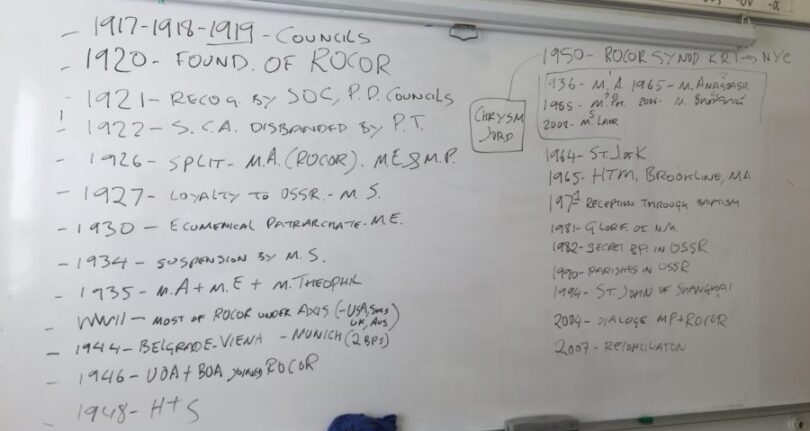 - 1917-1918-1919 - COUNCILS
- 1920- FOUND. OF ROCOR
- 1921- RECOG. BY SOC, P.D. COUNCILS
- 1922- S.C.A. DISBANDED BY P.T.
- 1926- SPLIT- M.A.(ROCOR). M.E & M.P.
- 1927- LOYALTY TO USSR- M.S.
- 1930- ECUMENICAL PATRIARCHATE- M.E.
- 1934- SUSPENSION BY M.S.
- 1935- M.A + M.E + M.THEOPHIL
- WWII - MOST OF ROCOR UNDER AXIS (-USA,
UK, Aus.)
- 1944- BELGRADE-VIENA - MUNICH (2 BPS)
- 1946- UOA + BOA JOINED ROCOR
- 1948- H+S
CHRYSM
JORD
1950- ROCOR SYNOD → NYC
1936- M.A. 1965- M. ANASTASII.
M. PH.
2008- M. LAUR
1964- ST J of K
1965- HTM, BROOKLINE, MA
RECEPTION THROUGH BAPTISM
1981- GLORF OF N.M.
1982- SECRET BP. IN USSR
1990- PARISHES IN USSR
1994- ST. JOHN OF SHANGHAI
2004- DIALOGE MP+ROCOR
2007- RECONCILIATON